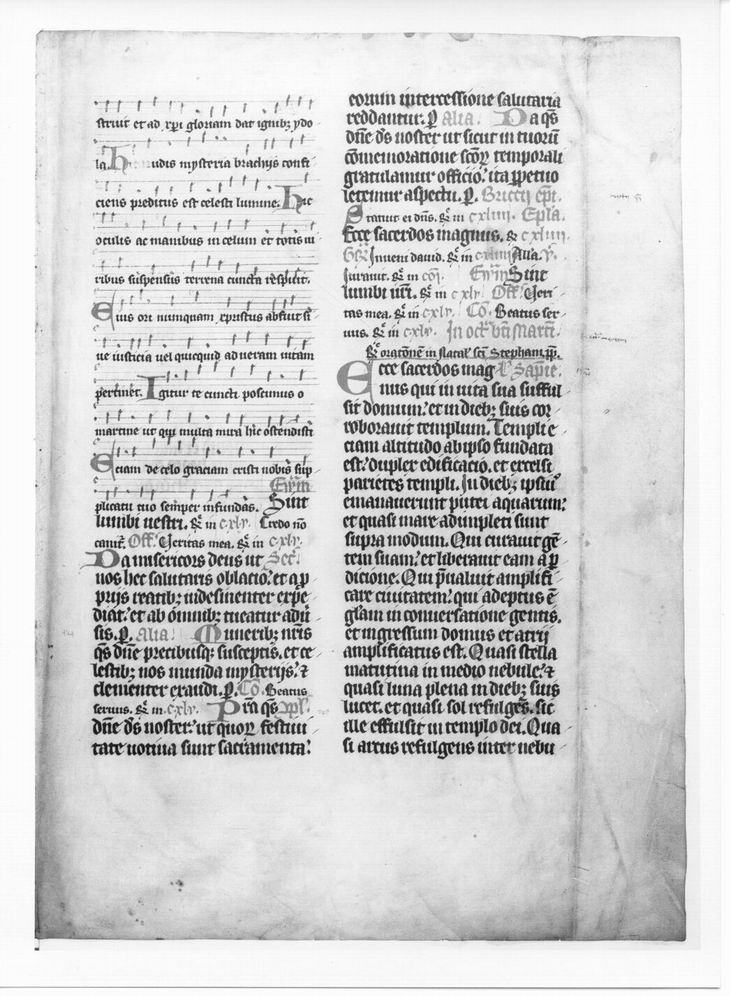 struit et ad xpi gloriam dat ignibꝫ ydo
la. Hic rudis mysteria brachijs confi
ciens preditus est celesti lumine. Hic
oculis ac manibus in celum et totis ui
ribus suspensus terrena cuncta respuit.
Eius ori nunquam xpistus abfuit si
ue iusticia uel quicquid ad ueram uitam
pertinet. Igitur te cuncti poscimus o
martine ut qui multa mira hic ostendisti
Eciam de celo graciam cristi nobis sup
plicatu tuo semper infundas. Sint
lumbi uestri. in cxlv. Credo nō
canit. Off. Ueritas mea. in cxlv.
Da misericors deus ut Sec.
nos hec salutaris oblacio. et a ꝓ
prijs reatibꝫ indesinenter expe
diat. et ab omnibꝫ tueatur adū
sis. ꝑ. Alia. Muneribꝫ nr̄is
qs̄ dn̄e precibusqꝫ susceptis. et ce
lestibꝫ nos munda mysterijs. ⁊
clementer exaudi. ꝑ. Co. Beatus
seruus. in cxlv. Pr̄a qs̄
dn̄e ds̄ noster. ut quoꝝ festiui
tate uotiua sunt sacramenta.
eorum intercessione salutaria
reddantur. ꝑ Alia. Da qs̄
dn̄e ds̄ noster ut sicut in tuorū
cōmemoratione scōꝝ temporali
gratulamur officio. ita ꝑpetuo
letemur aspectu. ꝑ. Briccij epi.
Statuit ei dn̄s. in cxliiii. Epla.
Ecce sacerdos magnus. cxliiii.
Inueni dauid. in cxliiii Alla.
Iurauit. Sint
lumbi ur̄i. in cxlv. Off. Ueri
tas mea. in cxlv. Co. Beatus ser
uus. in cxlv. In oct. bt̄i Martī.
oratōnē in natal sc̄i Stephani pp.
Ecce sacerdos mag Sapie.
nus qui in uita sua sufful
sit domum. et in diebꝫ suis cor
roborauit templum. Templi e
ciam altitudo ab ipso fundata
est. duplex edificacio. et excelsi
parietes templi. In diebꝫ ipsiꝰ
emanauerunt putei aquarum.
et quasi mare adimpleti sunt
supra modum. Qui curauit gē
tem suam. et liberauit eam a ꝑ
dicione. Qui p̄ualuit amplifi
care ciuitatem. qui adeptus ē
gl̄am in conuersatione gentis.
et ingressum domus et atrij
amplificatus est. Quasi stella
matutina in medio nebule. ⁊
quasi luna plena in diebꝫ suis
lucet. et quasi sol refulgēs. sic
ille effulsit in templo dei. Qua
si arcus refulgens inter nebu